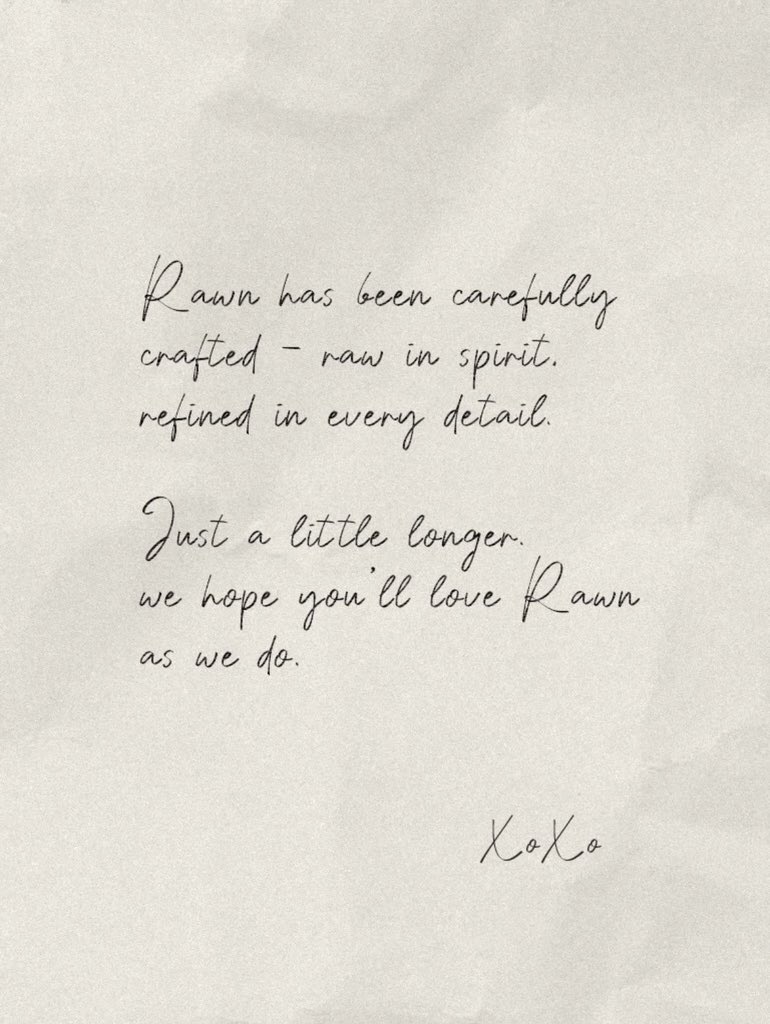 Rawn has been carefully
crafted - raw in spirit.
refined in every detail.
Just a little longer.
we hope you'll love Rawn
as we do.
XoXo